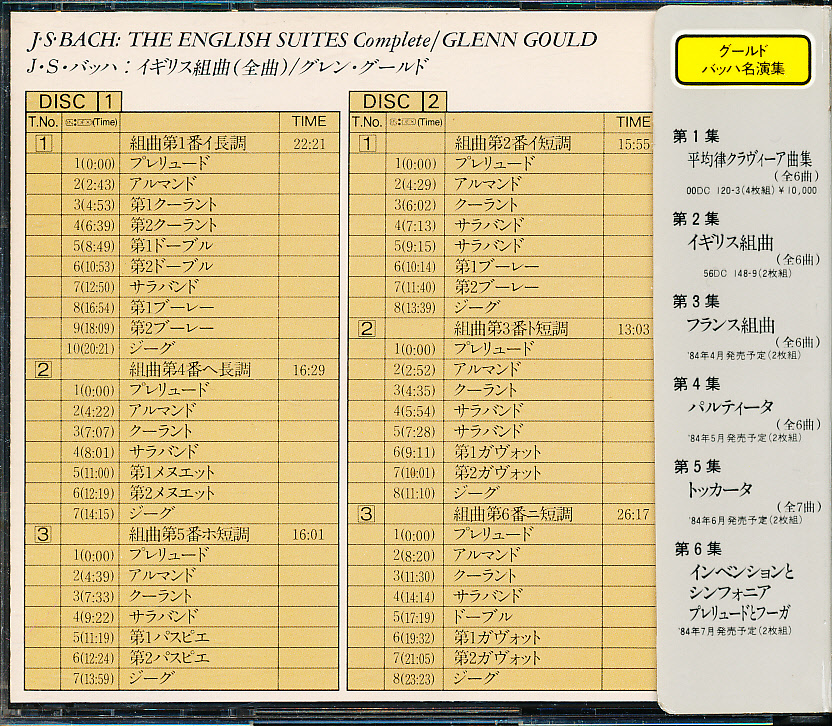 J·S·BACH: THE ENGLISH SUITES Complete/GLENN GOULD
J・S・バッハ：イギリス組曲(全曲)/グレン・グールド
DISC 1
T.No. (Time) TIME
1 組曲第1番イ長調 22:21
1(0:00) プレリュード
2(2:43) アルマンド
3(4:53) 第1クーラント
4(6:39) 第2クーラント
5(8:49) 第1ドーブル
6(10:53) 第2ドーブル
7(12:50) サラバンド
8(16:54) 第1ブーレー
9(18:09) 第2ブーレー
10(20:21) ジーグ
2 組曲第4番ヘ長調 16:29
1(0:00) プレリュード
2(4:22) アルマンド
3(7:07) クーラント
4(8:01) サラバンド
5(11:00) 第1メヌエット
6(12:19) 第2メヌエット
7(14:15) ジーグ
3 組曲第5番ホ短調 16:01
1(0:00) プレリュード
2(4:39) アルマンド
3(7:33) クーラント
4(9:22) サラバンド
5(11:19) 第1パスピエ
6(12:24) 第2パスピエ
7(13:59) ジーグ
DISC 2
T.No. (Time) TIME
1 組曲第2番イ短調 15:55
1(0:00) プレリュード
2(4:29) アルマンド
3(6:02) クーラント
4(7:13) サラバンド
5(9:15) サラバンド
6(10:14) 第1ブーレー
7(11:40) 第2ブーレー
8(13:39) ジーグ
2 組曲第3番ト短調 13:03
1(0:00) プレリュード
2(2:52) アルマンド
3(4:35) クーラント
4(5:54) サラバンド
5(7:28) サラバンド
6(9:11) 第1ガヴォット
7(10:01) 第2ガヴォット
8(11:10) ジーグ
3 組曲第6番ニ短調 26:17
1(0:00) プレリュード
2(8:20) アルマンド
3(11:30) クーラント
4(14:14) サラバンド
5(17:19) ドーブル
6(19:32) 第1ガヴォット
7(21:05) 第2ガヴォット
8(23:23) ジーグ
グールド
バッハ名演集
第1集
平均律クラヴィーア曲集
(全6曲)
00DC 120-3(4枚組)￥10,000
第2集
イギリス組曲
(全6曲)
56DC 148-9(2枚組)
第3集
フランス組曲
(全6曲)
'84年4月発売予定(2枚組)
第4集
パルティータ
(全6曲)
'84年5月発売予定(2枚組)
第5集
トッカータ
(全7曲)
'84年6月発売予定(2枚組)
第6集
インベンションと
シンフォニア
プレリュードとフーガ
'84年7月発売予定(2枚組)